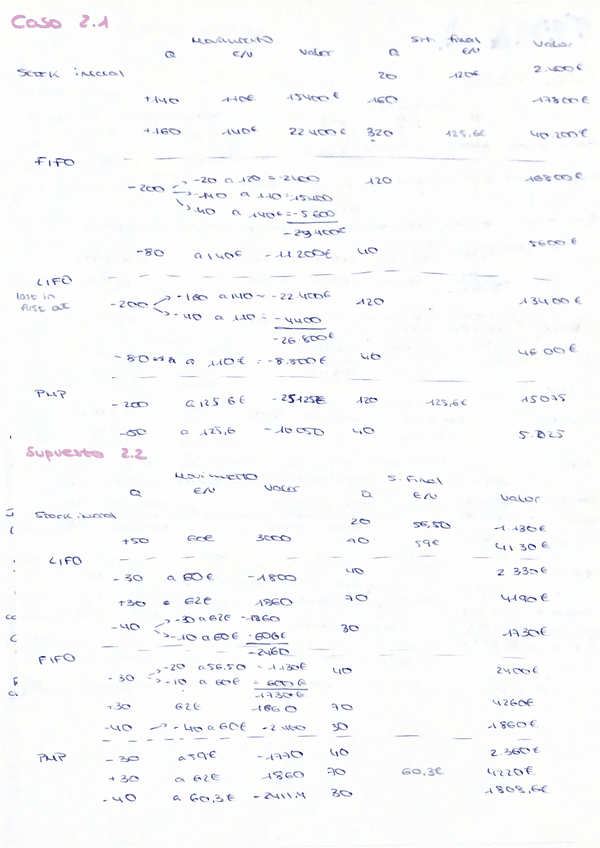 Caso 2.1
Movimiento Sit. final
Q €/U Valor Q €/U Valor
Stock inicial 20 120€ 2.400€
+140 110€ 15400€ 160 17800€
+160 140€ 22400€ 320 125,6€ 40200€
FIFO
-200 -20 a 120 = -2400 120 16800€
-140 a 110 = 15400
40 a 140€ = -5600
-23400€
-80 a 140€ -11200€ 40 5600€
LIFO
last in
first out
-200 -160 a 140 = -22400€ 120 13400€
-40 a 110 = -4400
-26.800€
-80 a 110€ = -8.800€ 40 4600€
PMP -200 a 125 6€ -25125€ 120 125,6€ 15075
-80 a 125,6 -10050 40 5.025
Supuesto 2.2
Movimiento S. Final
Q €/U Valor Q €/U Valor
Stock inicial 20 56,50 1.130€
+50 60€ 3000 70 59€ 4130€
LIFO
-30 a 60€ -1800 40 2330€
+30 a 62€ 1860 70 4190€
-40 -30 a 62€ -1860 30 1730€
-10 a 60€ -600€
-2460
FIFO
-30 -20 a 56.50 = 1130€ 40 2400€
-10 a 60€ = 600€
-1730€
+30 62€ 1860 70 4260€
-40 -40 a 60€ -2400 30 1860€
PMP -30 a 59€ -1770 40 2.360€
+30 a 62€ 1860 70 60,3€ 4220€
-40 a 60,3€ -2411.4 30 1808,6€